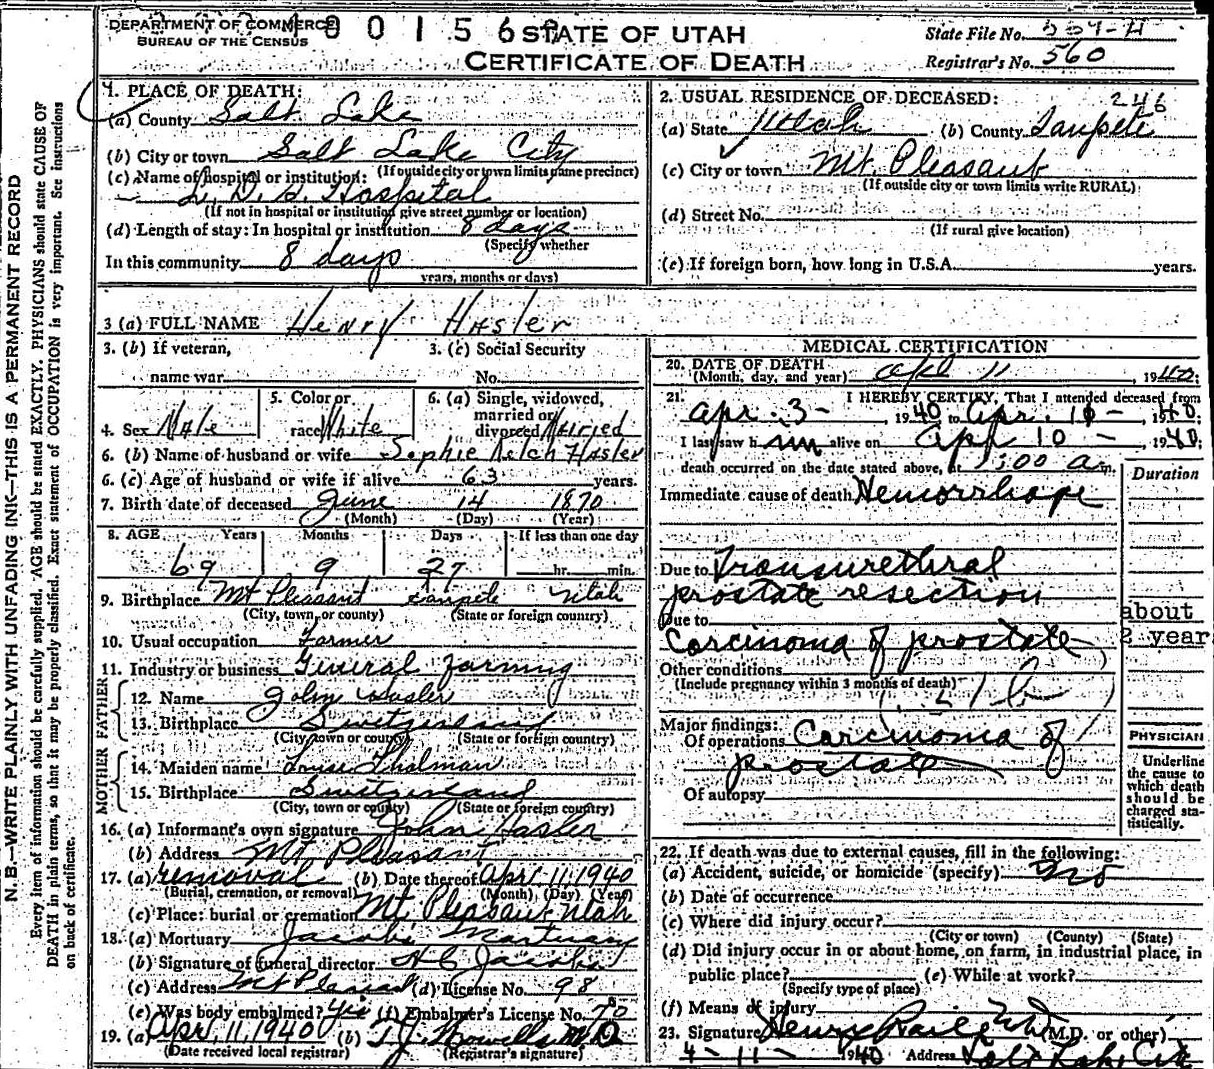 DEPARTMENT OF COMMERCE
BUREAU OF THE CENSUS
STATE OF UTAH
CERTIFICATE OF DEATH
State File No.
Registrar's No. 560
N. B.—WRITE PLAINLY WITH UNFADING INK—THIS IS A PERMANENT RECORD
Every item of information should be carefully supplied. AGE should be stated EXACTLY. PHYSICIANS should state CAUSE OF
DEATH in plain terms, so that it may be properly classified. Exact statement of OCCUPATION is very important. See instructions
on back of certificate.
1. PLACE OF DEATH:
(a) County Salt Lake
(b) City or town Salt Lake City
(If outside city or town limits name precinct)
(c) Name of hospital or institution:
L. D. S. Hospital
(If not in hospital or institution give street number or location)
(d) Length of stay: In hospital or institution 8 days
(Specify whether
In this community 8 days
years, months or days)
2. USUAL RESIDENCE OF DECEASED: 246
(a) State Utah (b) County Sanpete
(c) City or town Mt. Pleasant
(If outside city or town limits write RURAL)
(d) Street No.
(If rural give location)
(e) If foreign born, how long in U.S.A. years.
3 (a) FULL NAME Henry Hasler
3. (b) If veteran, 3. (c) Social Security
name war No.
4. Sex Male
5. Color or
race White
6. (a) Single, widowed,
married or
divorced Married
6. (b) Name of husband or wife Sophie Hasler
6. (c) Age of husband or wife if alive 63 years.
7. Birth date of deceased June 14 1870
(Month) (Day) (Year)
8. AGE Years Months Days If less than one day
69 9 27 hr. min.
9. Birthplace Mt Pleasant Sanpete Utah
(City, town, or county) (State or foreign country)
10. Usual occupation Farmer
11. Industry or business General farming
FATHER
12. Name John Hasler
13. Birthplace Switzerland
(City, town or county) (State or foreign country)
MOTHER
14. Maiden name Thalman
15. Birthplace Switzerland
(City, town or county) (State or foreign country)
16. (a) Informant's own signature John Hasler
(b) Address Mt Pleasant
17. (a) removal (b) Date thereof Apr. 11, 1940
(Burial, cremation, or removal) (Month) (Day) (Year)
(c) Place: burial or cremation Mt Pleasant Utah
18. (a) Mortuary Jacobs Mortuary
(b) Signature of funeral director Jacobs
(c) Address Mt Pleasant (d) License No. 98
(e) Was body embalmed? Yes (f) Embalmer's License No.
19. (a) Apr. 11, 1940 (b) T. J. Howells M.D.
(Date received local registrar) (Registrar's signature)
MEDICAL CERTIFICATION
20. DATE OF DEATH
(Month, day, and year) Apl 11, 1940;
21. I HEREBY CERTIFY, That I attended deceased from
Apr. 3 -, 1940 to Apr. 10 -, 1940;
I last saw him alive on Apr 10 -, 1940;
death occurred on the date stated above, at 1:00 a m.
Duration
Immediate cause of death Hemorrhage
Due to Transurethral
prostate resection
Due to
Carcinoma of prostate
about
2 year
Other conditions
(Include pregnancy within 3 months of death)
Major findings:
Of operations Carcinoma of
prostate
Of autopsy
PHYSICIAN
Underline
the cause to
which death
should be
charged sta-
tistically.
22. If death was due to external causes, fill in the following:
(a) Accident, suicide, or homicide (specify) No
(b) Date of occurrence
(c) Where did injury occur?
(City or town) (County) (State)
(d) Did injury occur in or about home, on farm, in industrial place, in
public place? (e) While at work?
(Specify type of place)
(f) Means of injury
23. Signature Henry (M.D. or other)
4 - 11 - 1940 Address Salt Lake City